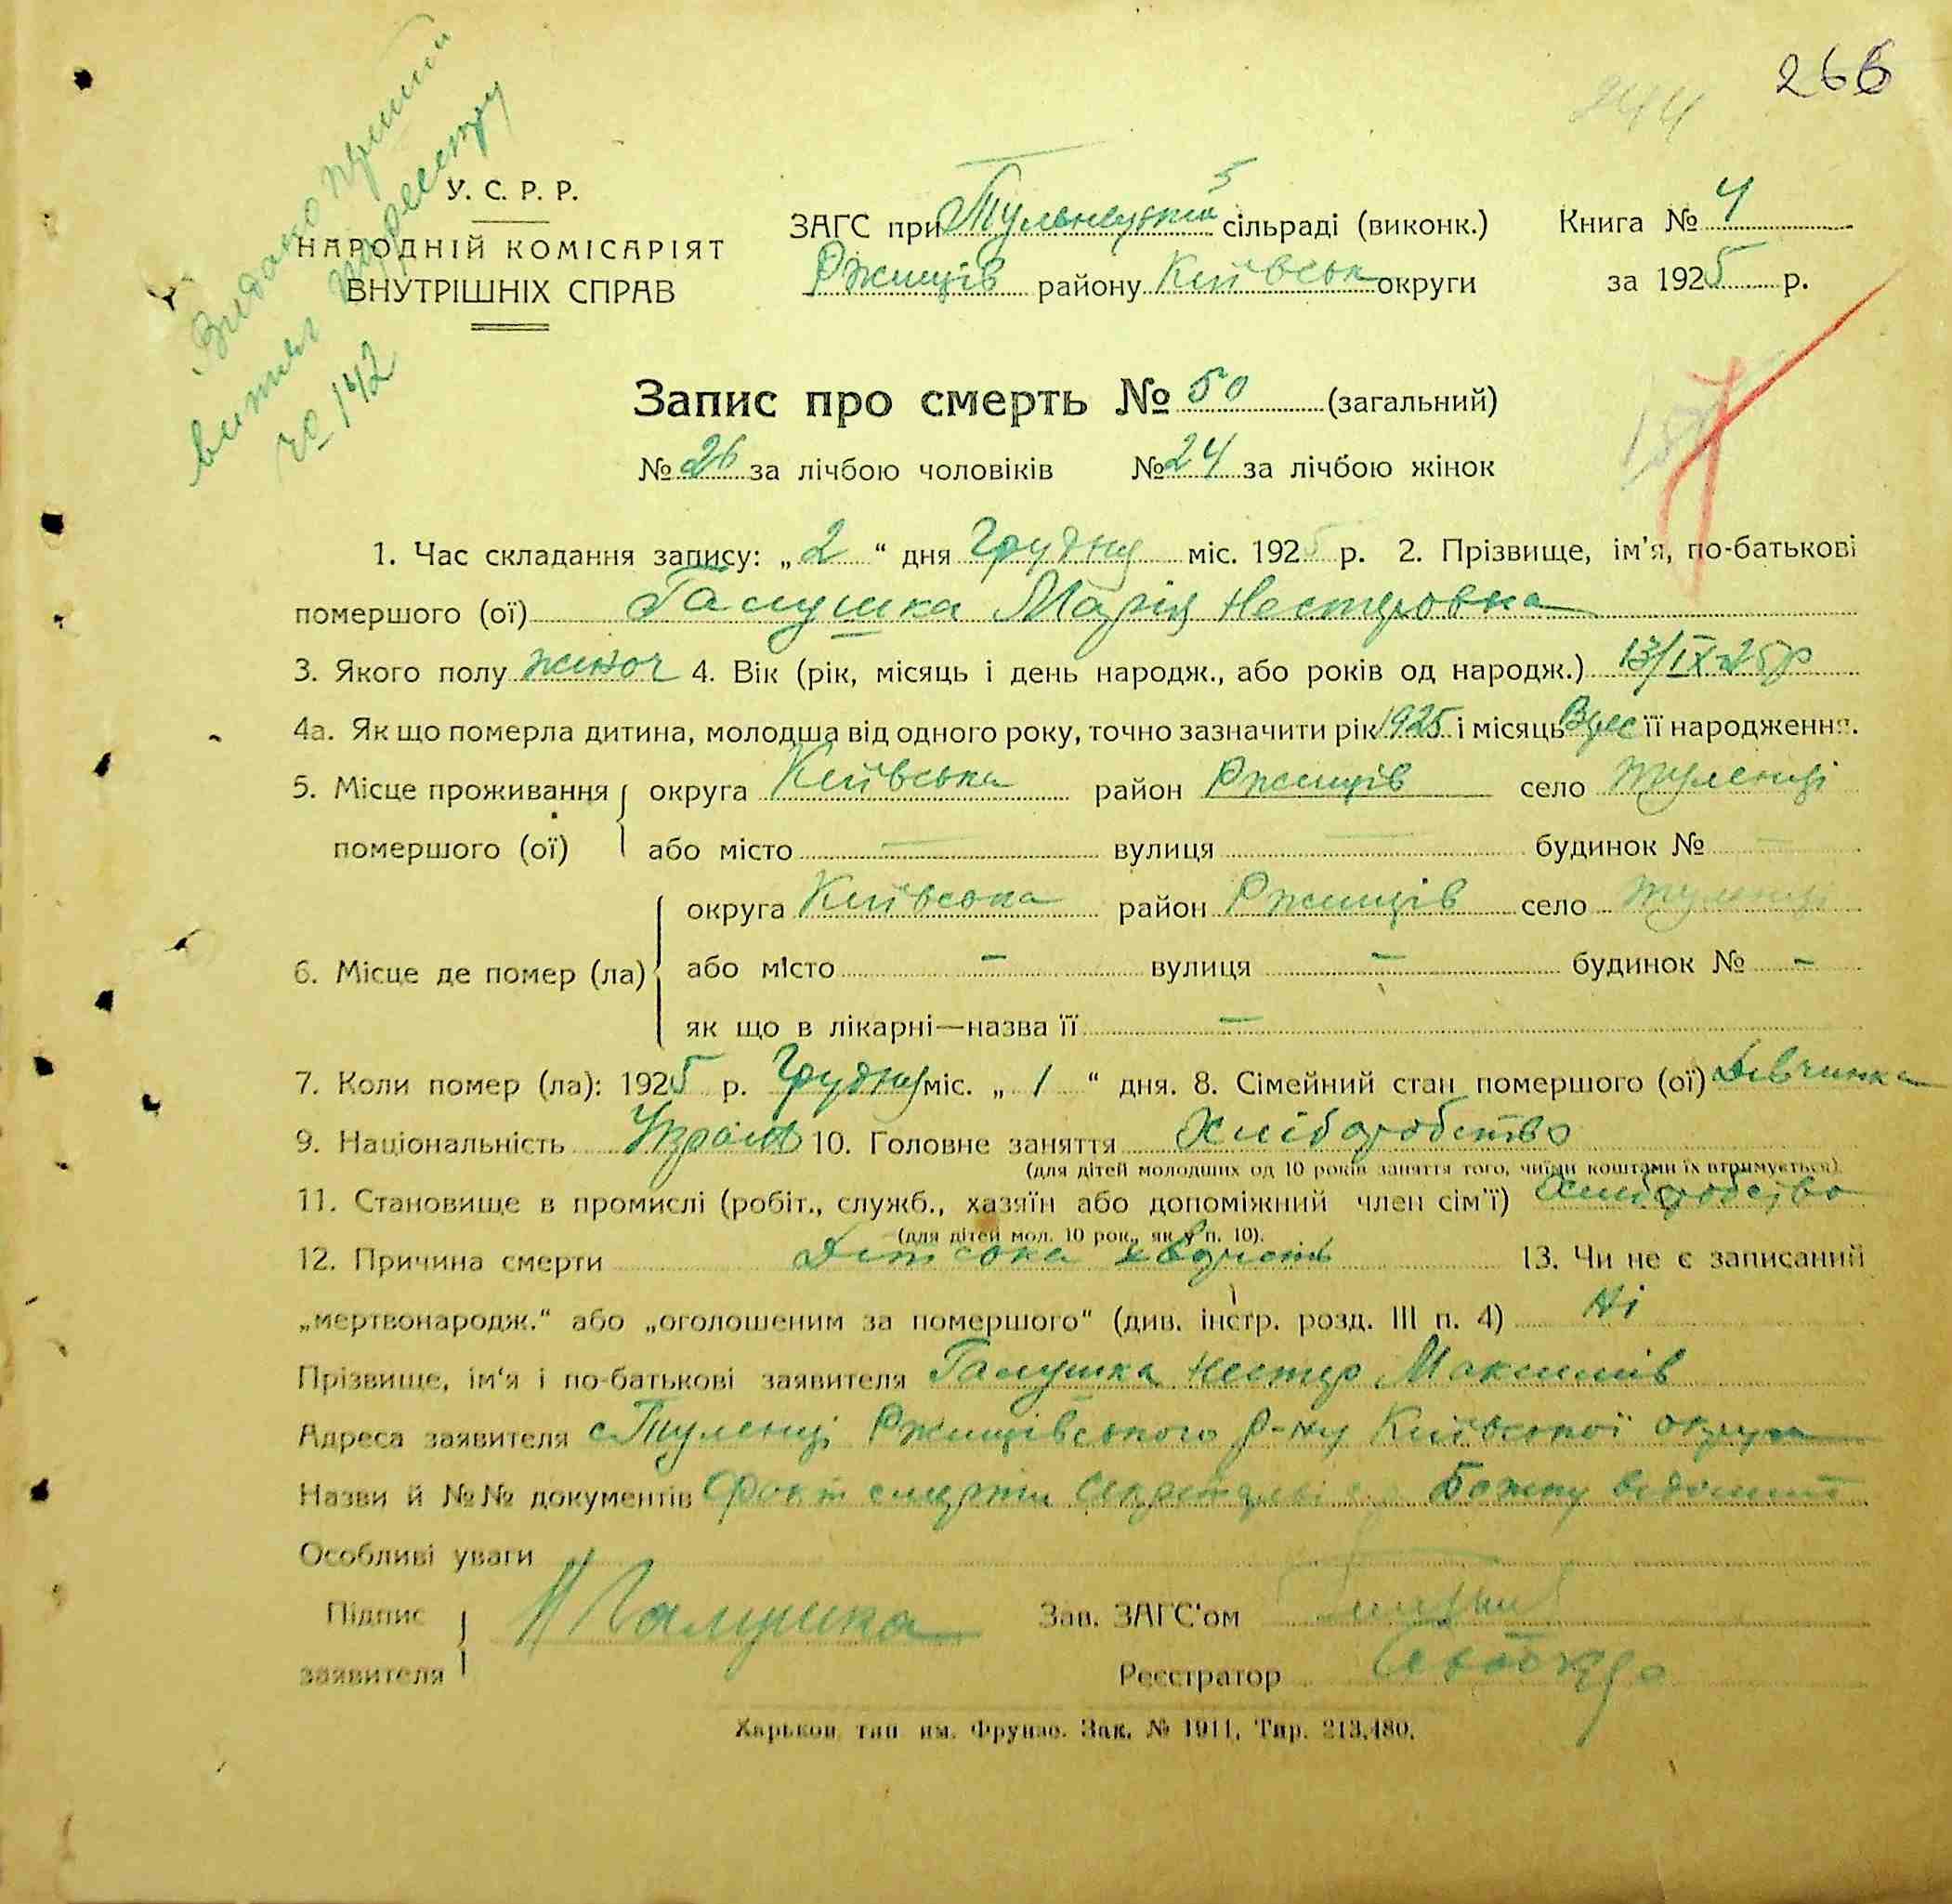 266
244
Видано перший
витяг по реєстру
№ 142
У. С. Р. Р.
НАРОДНІЙ КОМІСАРІЯТ
ВНУТРІШНІХ СПРАВ
ЗАГС при сільраді (виконк.) Книга № 4
Ржищів району Київськ округи за 1925 р.
Запис про смерть № 50 (загальний)
№ 26 за лічбою чоловіків № 24 за лічбою жінок
1. Час складання запису: „2“ дня Грудня міс. 1925 р. 2. Прізвище, ім'я, по-батькові
помершого (ої) Галушка Марія Нестеровна
3. Якого полу жіноч 4. Вік (рік, місяць і день народж., або років од народж.) 13/IX-25р
4а. Як що померла дитина, молодша від одного року, точно зазначити рік 1925 і місяць Врес її народження.
5. Місце проживання округа Київська район Ржищів село Туленці
помершого (ої) або місто — вулиця — будинок № —
округа Київська район Ржищів село Тулинці
6. Місце де помер (ла) або місто — вулиця — будинок № —
як що в лікарні—назва її —
7. Коли помер (ла): 1925 р. Грудня міс. „1“ дня. 8. Сімейний стан помершого (ої) Дівчинка
9. Національність 10. Головне заняття Хліборобство
(для дітей молодших од 10 років заняття того, чиїми коштами їх втримується).
11. Становище в промислі (робіт., служб., хазяїн або допоміжний член сім'ї) Хліборобство
(для дітей мол. 10 рок., як у п. 10).
12. Причина смерти Дитська хворість 13. Чи не є записаний
„мертвонародж.“ або „оголошеним за помершого“ (див. інстр. розд. III п. 4) Ні
Прізвище, ім'я і по-батькові заявителя Галушка Нестер Максимів
Адреса заявителя с Туленці Ржищівського р-ну Київської округи
Назви й №№ документів Факт смерти Божку відомий
Особливі уваги —
Підпис Н Галушка Зав. ЗАГС'ом
заявителя Реєстратор
Харьков, тип. им. Фрунзе. Зак. № 1911. Тир. 213.480.